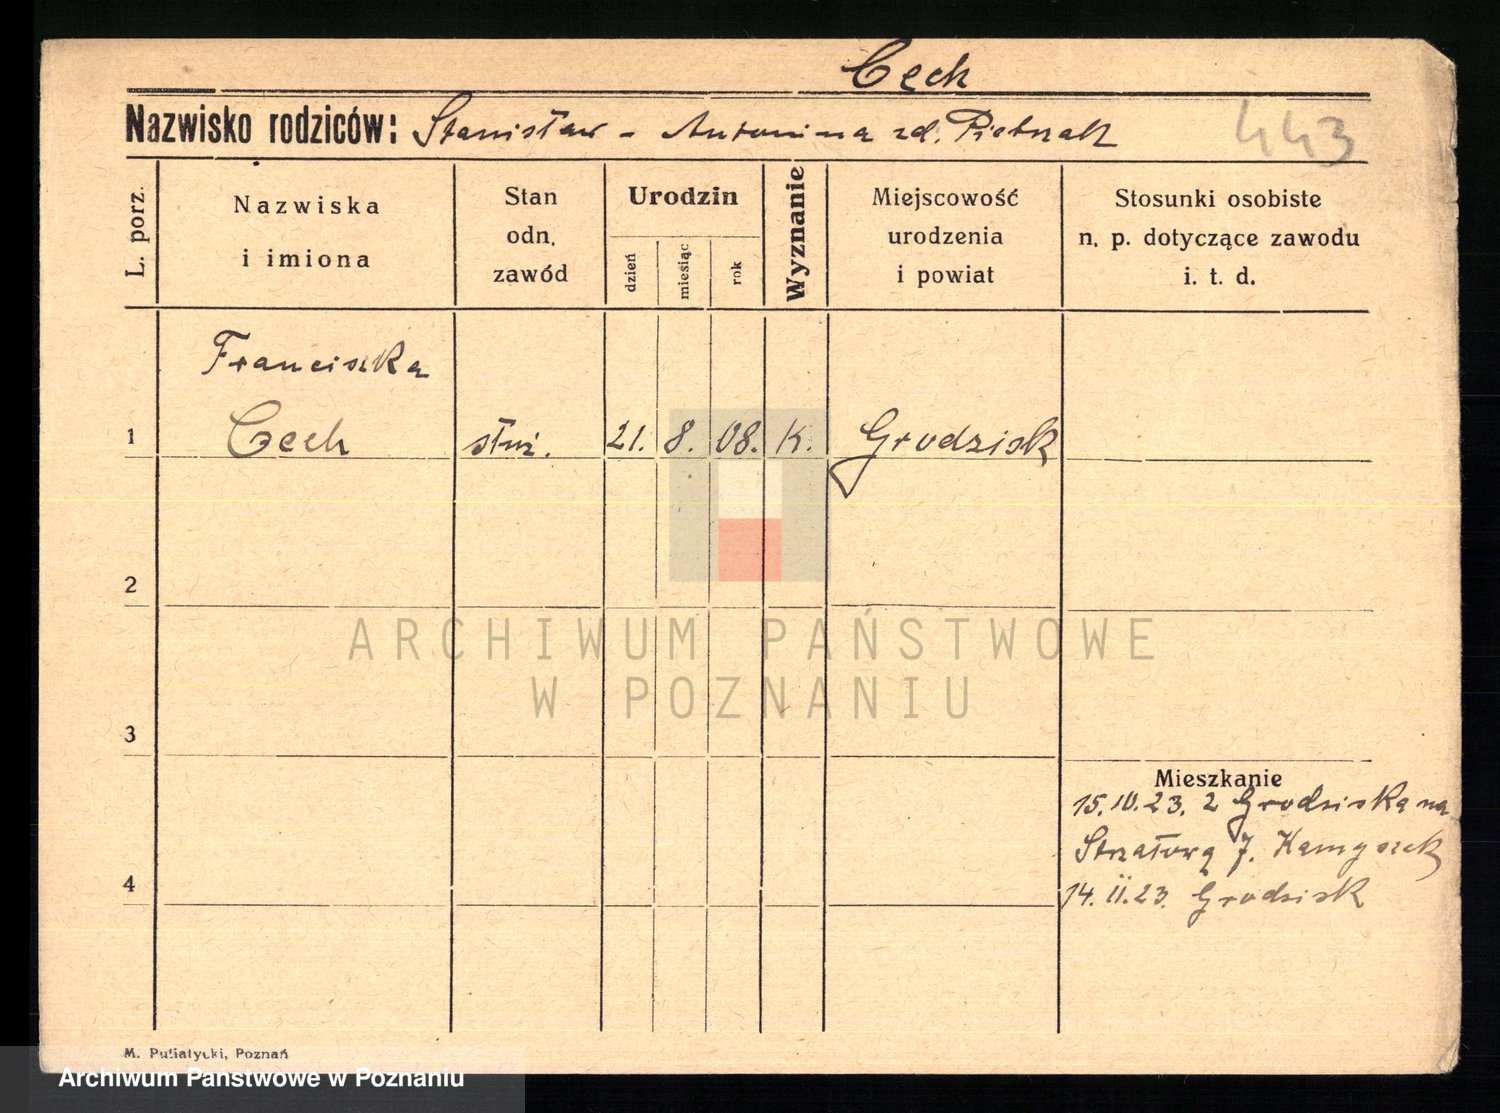 Cech
Nazwisko rodziców: Stanisław - Antonina zd. Pietrzak
443
L. porz.
Nazwiska
i imiona
Stan
odn.
zawód
Urodzin
dzień
miesiąc
rok
Wyznanie
Miejscowość
urodzenia
i powiat
Stosunki osobiste
n. p. dotyczące zawodu
i. t. d.
Franciszka
1 Cech służ. 21. 8. 08. K. Grodzisk
2
ARCHIWUM PAŃSTWOWE
W POZNANIU
3
Mieszkanie
15.10.23. z Grodziska na
Strzałową 7. Kamyszek
4
14. II. 23. Grodzisk
M. Putiatycki, Poznań
Archiwum Państwowe w Poznaniu